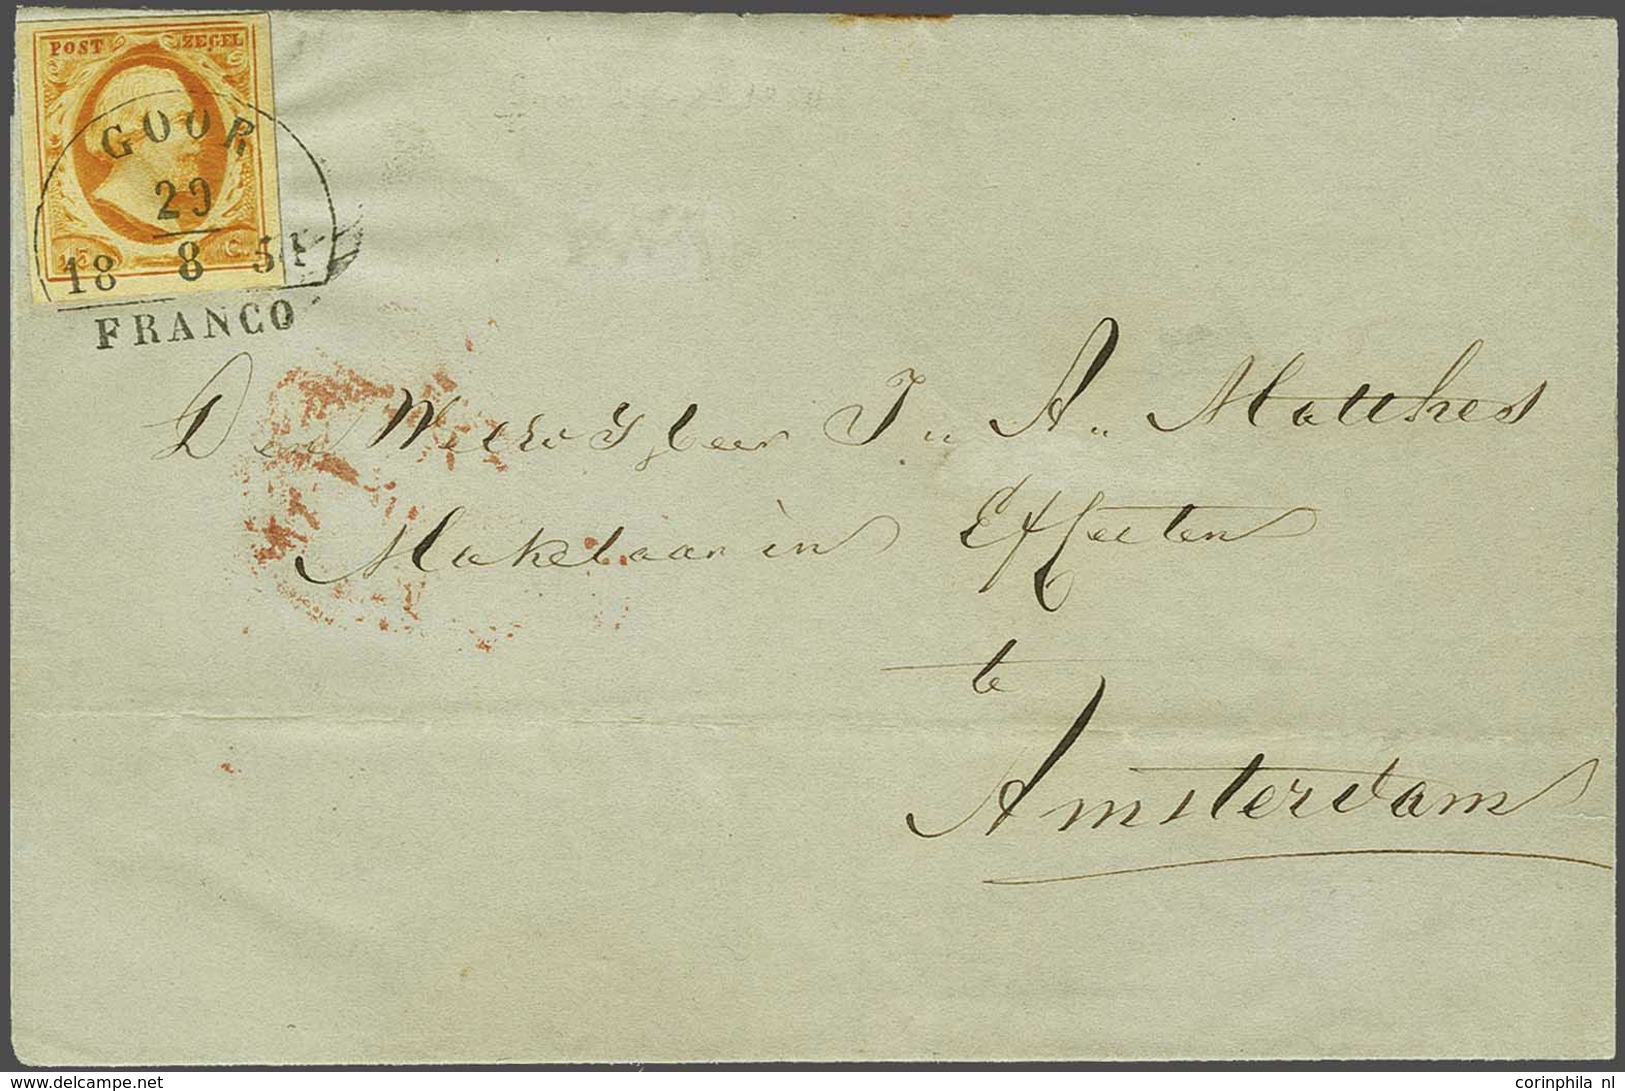 POST ZEGEL
GOOR
29
18 8 54
FRANCO
15 C.
Den WelEd Gbeer J. A. Matthes
Makelaar in Effecten
te
Amsterdam
www.delcampe.net
corinphila nl